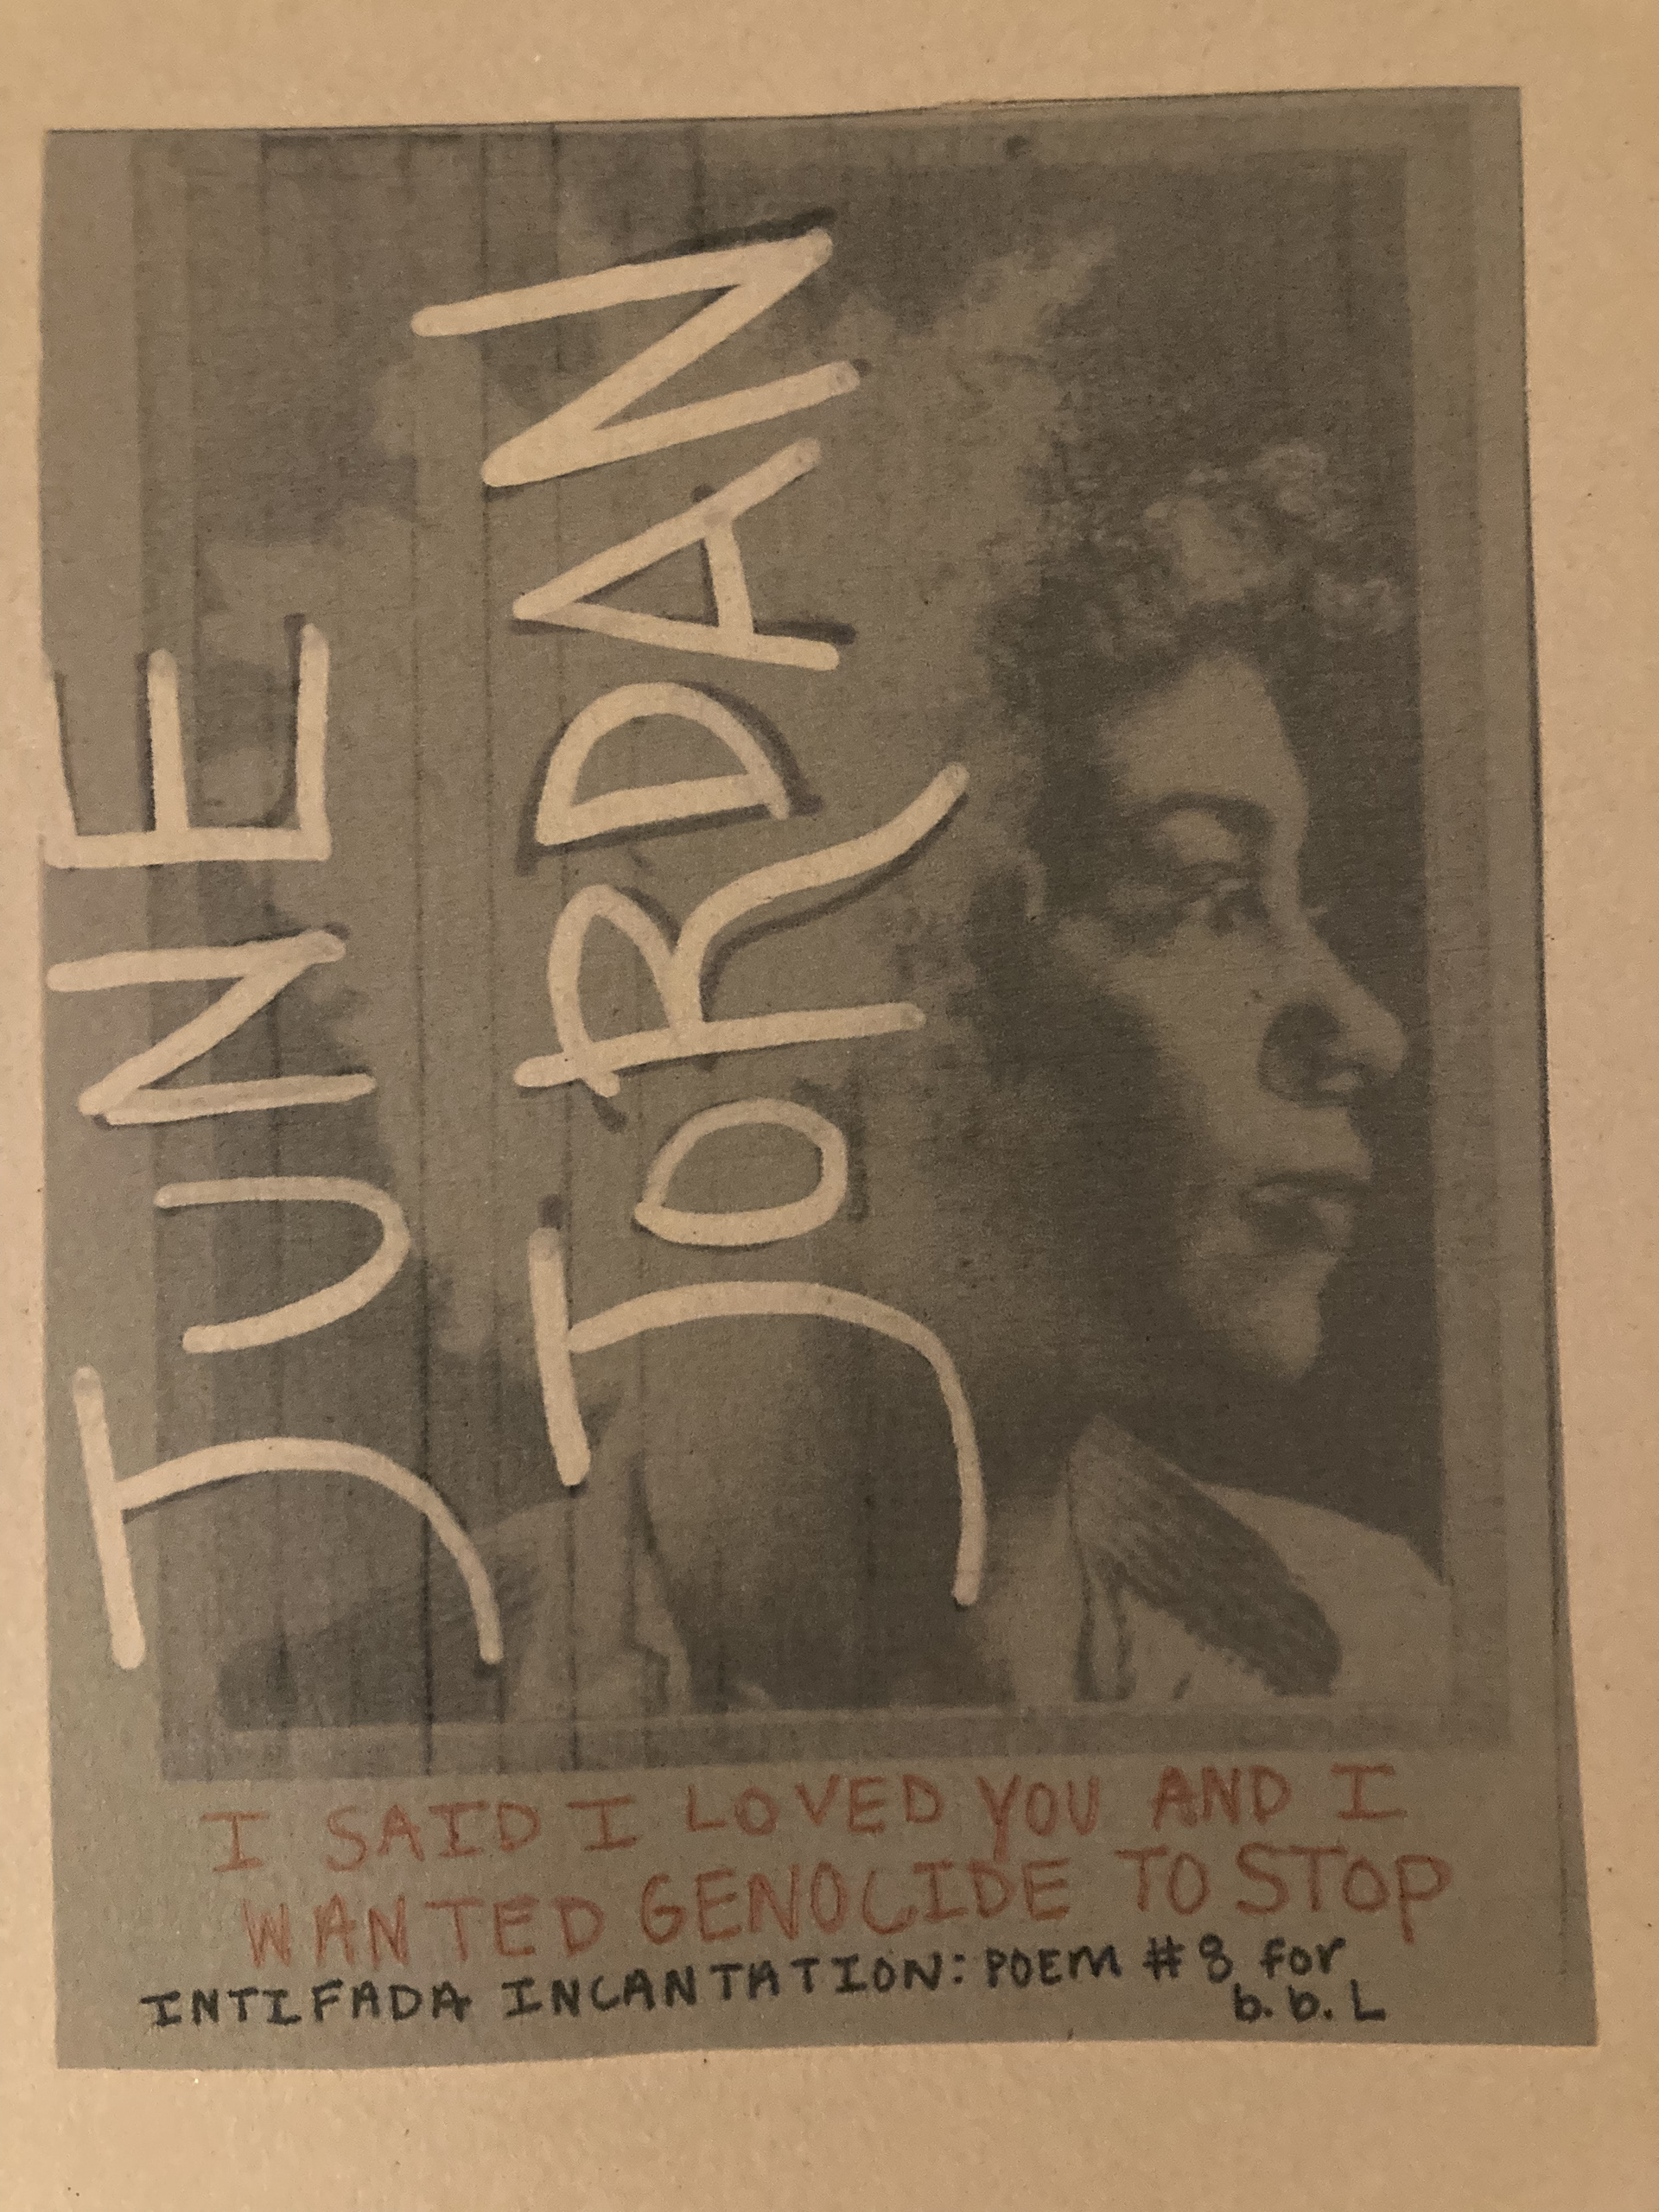 JUNE
JORDAN
I SAID I LOVED YOU AND I
WANTED GENOCIDE TO STOP
INTIFADA INCANTATION: POEM #8 for
b. b. L